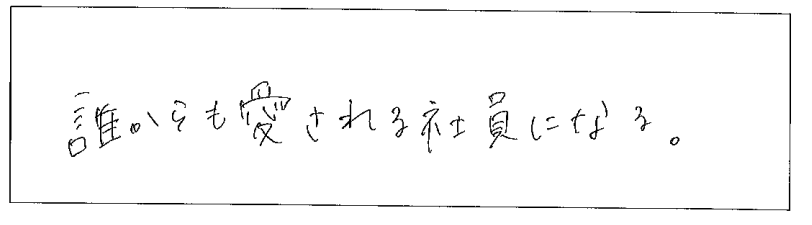 誰からも愛される社員になる。